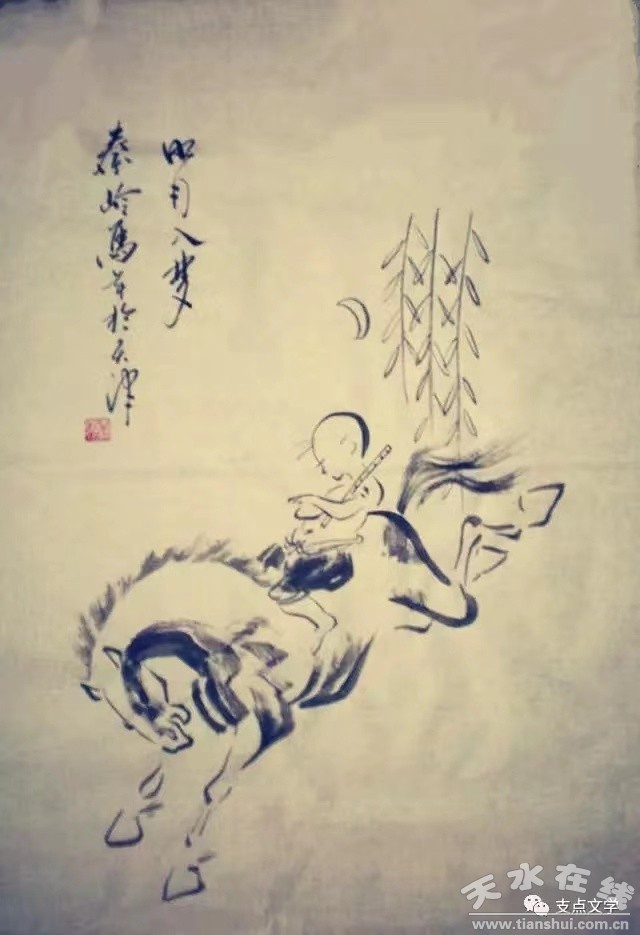 明月入梦
秦岭马年于天津
天水在线
支点文学
www.tianshui.com.cn